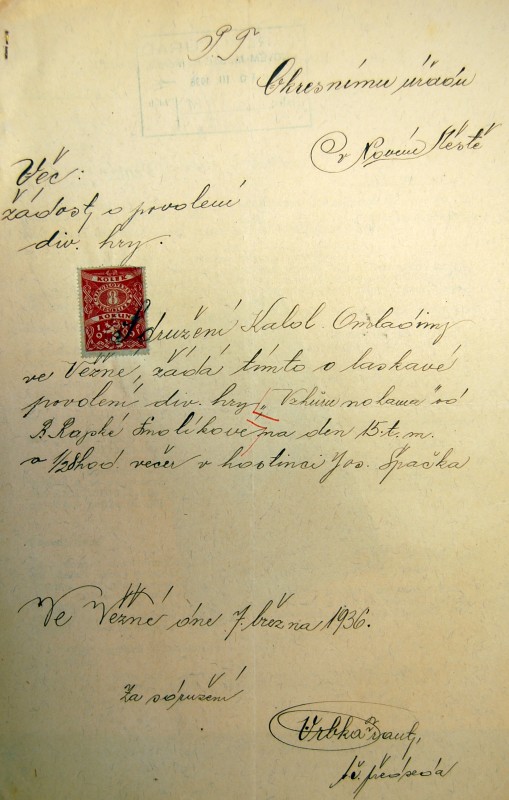 P. T.
Okresnímu úřadu
v Novém Městě
Věc:
žádost o povolení
div. hry.
KOLEK
8
KORUN
Sdružení Katol. Omladiny
ve Věžné, žádá tímto o laskavé
povolení div. hry „Vzhůru nohama" od
B. Rajské Smolíkové na den 15. t. m.
o 1/28 hod. večer v hostinci Jos. Špačka
Ve Věžné dne 7. března 1936.
Za sdružení
Vrbka
t. č. předseda